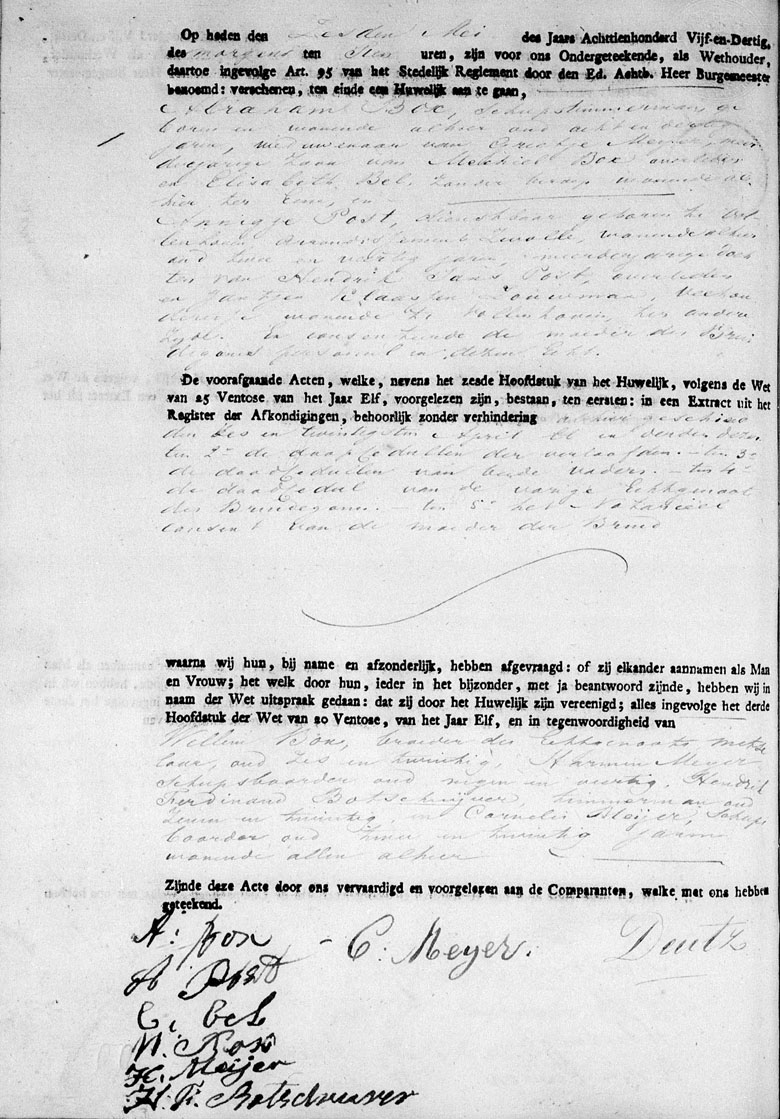 Op heden den Zesden Mei des Jaars Achttienhonderd Vijf-en-Dertig,
des morgens ten uren, zijn voor ons Ondergeteekende, als Wethouder,
daartoe ingevolge Art. 95 van het Stedelijk Reglement door den Ed. Achtb. Heer Burgemeester
benoemd: verschenen, ten einde een Huwelijk aan te gaan,
Abraham Box, Scheepstimmerman, ge
boren en wonende alhier oud acht en dertig
jaren, weduwenaar van Grietje Meyer, meer
derjarige zoon van Melchiel Box overleden
en Elisabeth Bel, zonder beroep wonende al
hier ter eene, en
Annigje Post, dienstbaar geboren te Vol
lenhoven Arrondissement Zwolle, wonende alhier
oud twee en veertig jaren, meerderjarige doch
ter van Hendrik Jans Post, overleden
en Jantjen Klaassen Bouwman, veehou
derse wonende te Vollenhoven, ter andere
zijde. En consenteerende de moeder des Brui
degoms personeel in dezen Echt.
De voorafgaande Acten, welke, nevens het zesde Hoofdstuk van het Huwelijk, volgens de Wet
van 25 Ventose van het Jaar Elf, voorgelezen zijn, bestaan, ten eersten: in een Extract uit het
Register der Afkondigingen, behoorlijk zonder verhindering alhier geschied
den zes en twintigsten April en derden dezer
ten 2e de doopcedullen der verloofden. - ten 3e
de doodcedullen van beide vaders. - ten 4e
de doodcedul van de vorige Echtgenoot
des Bruidegoms. - ten 5e het Notarieel
consent van de moeder der Bruid
waarna wij hun, bij name en afzonderlijk, hebben afgevraagd: of zij elkander aannamen als Man
en Vrouw; het welk door hun, ieder in het bijzonder, met ja beantwoord zijnde, hebben wij in
naam der Wet uitspraak gedaan: dat zij door het Huwelijk zijn vereenigd; alles ingevolge het derde
Hoofdstuk der Wet van 20 Ventose, van het Jaar Elf, en in tegenwoordigheid van
Willem Box, broeder des Echtgenoots metse
laar, oud zes en twintig, Harmen Meyer
Scheepsboorder oud negen en veertig, Hendrik
Ferdinand Botschuijver, timmerman oud
zeven en twintig, en Cornelis Meijer, Scheeps
boorder oud twee en twintig Jaren
wonende allen alhier
Zijnde deze Acte door ons vervaardigd en voorgelezen aan de Comparanten, welke met ons hebben
geteekend.
A: Box - C. Meyer. Deutz
A Post
E. bel
W. Box
H. Meijer
H. F. Botschuiver